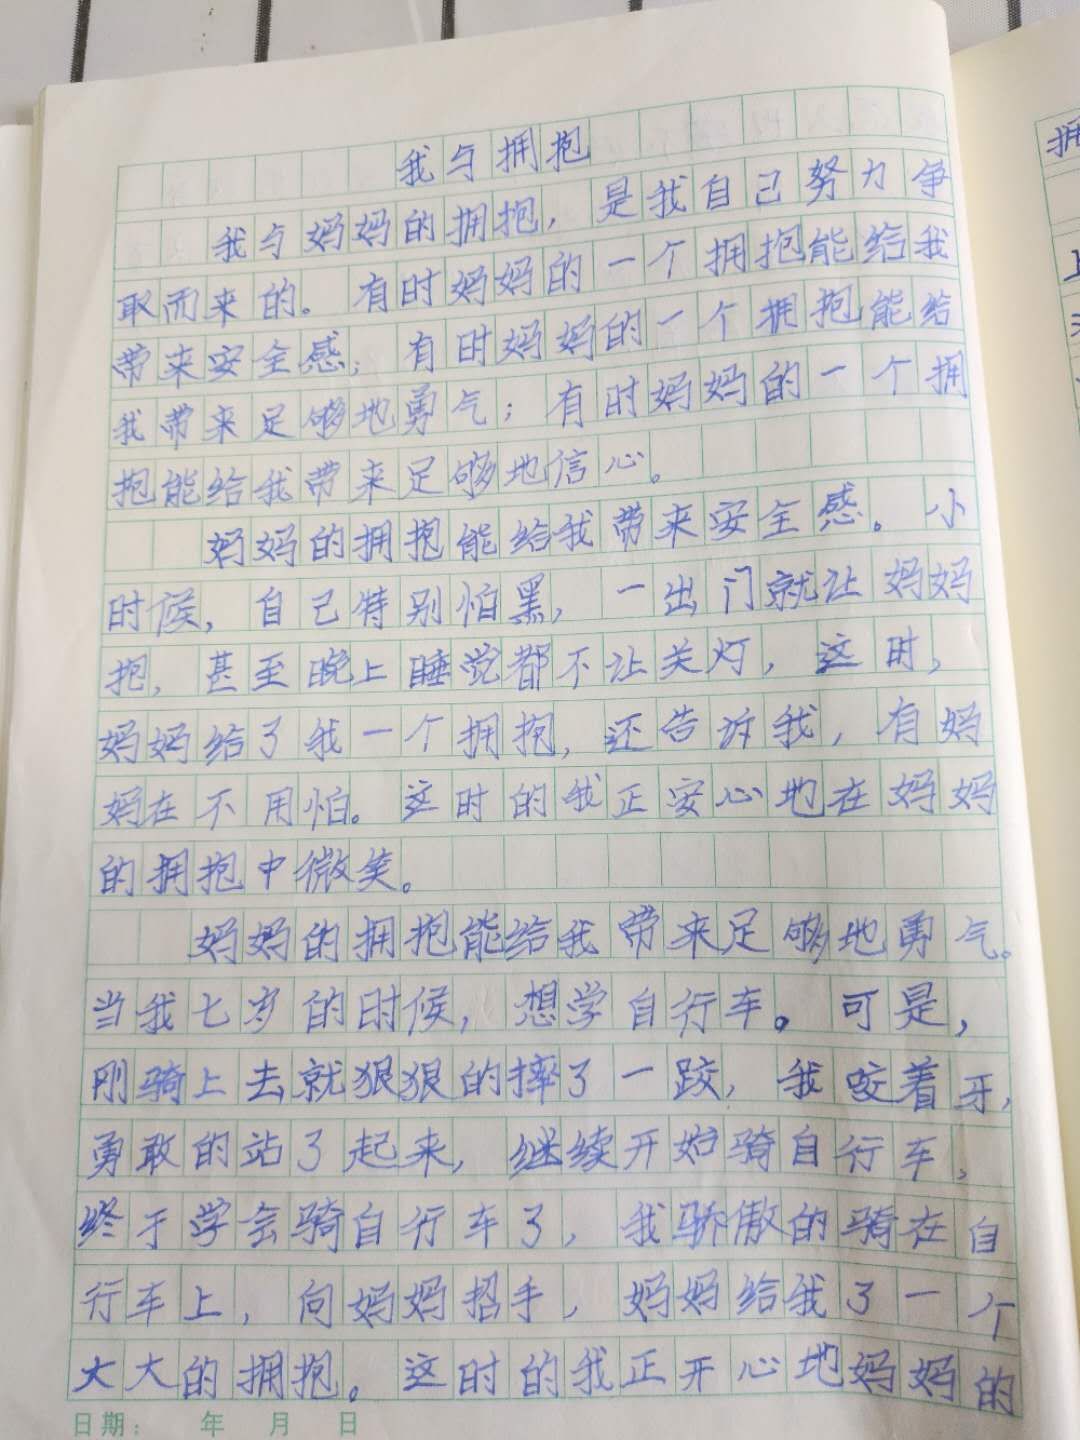 我与拥抱
我与妈妈的拥抱，是我自己努力争
取而来的。有时妈妈的一个拥抱能给我
带来安全感；有时妈妈的一个拥抱能给
我带来足够地勇气；有时妈妈的一个拥
抱能给我带来足够地信心。
妈妈的拥抱能给我带来安全感。小
时候，自己特别怕黑，一出门就让妈妈
抱，甚至晚上睡觉都不让关灯，这时，
妈妈给了我一个拥抱，还告诉我，有妈
妈在不用怕。这时的我正安心地在妈妈
的拥抱中微笑。
妈妈的拥抱能给我带来足够地勇气。
当我七岁的时候，想学自行车。可是，
刚骑上去就狠狠的摔了一跤，我咬着牙，
勇敢的站了起来，继续开始骑自行车，
终于学会骑自行车了，我骄傲的骑在自
行车上，向妈妈招手，妈妈给我了一个
大大的拥抱。这时的我正开心地妈妈的
日期： 年 月 日
拥